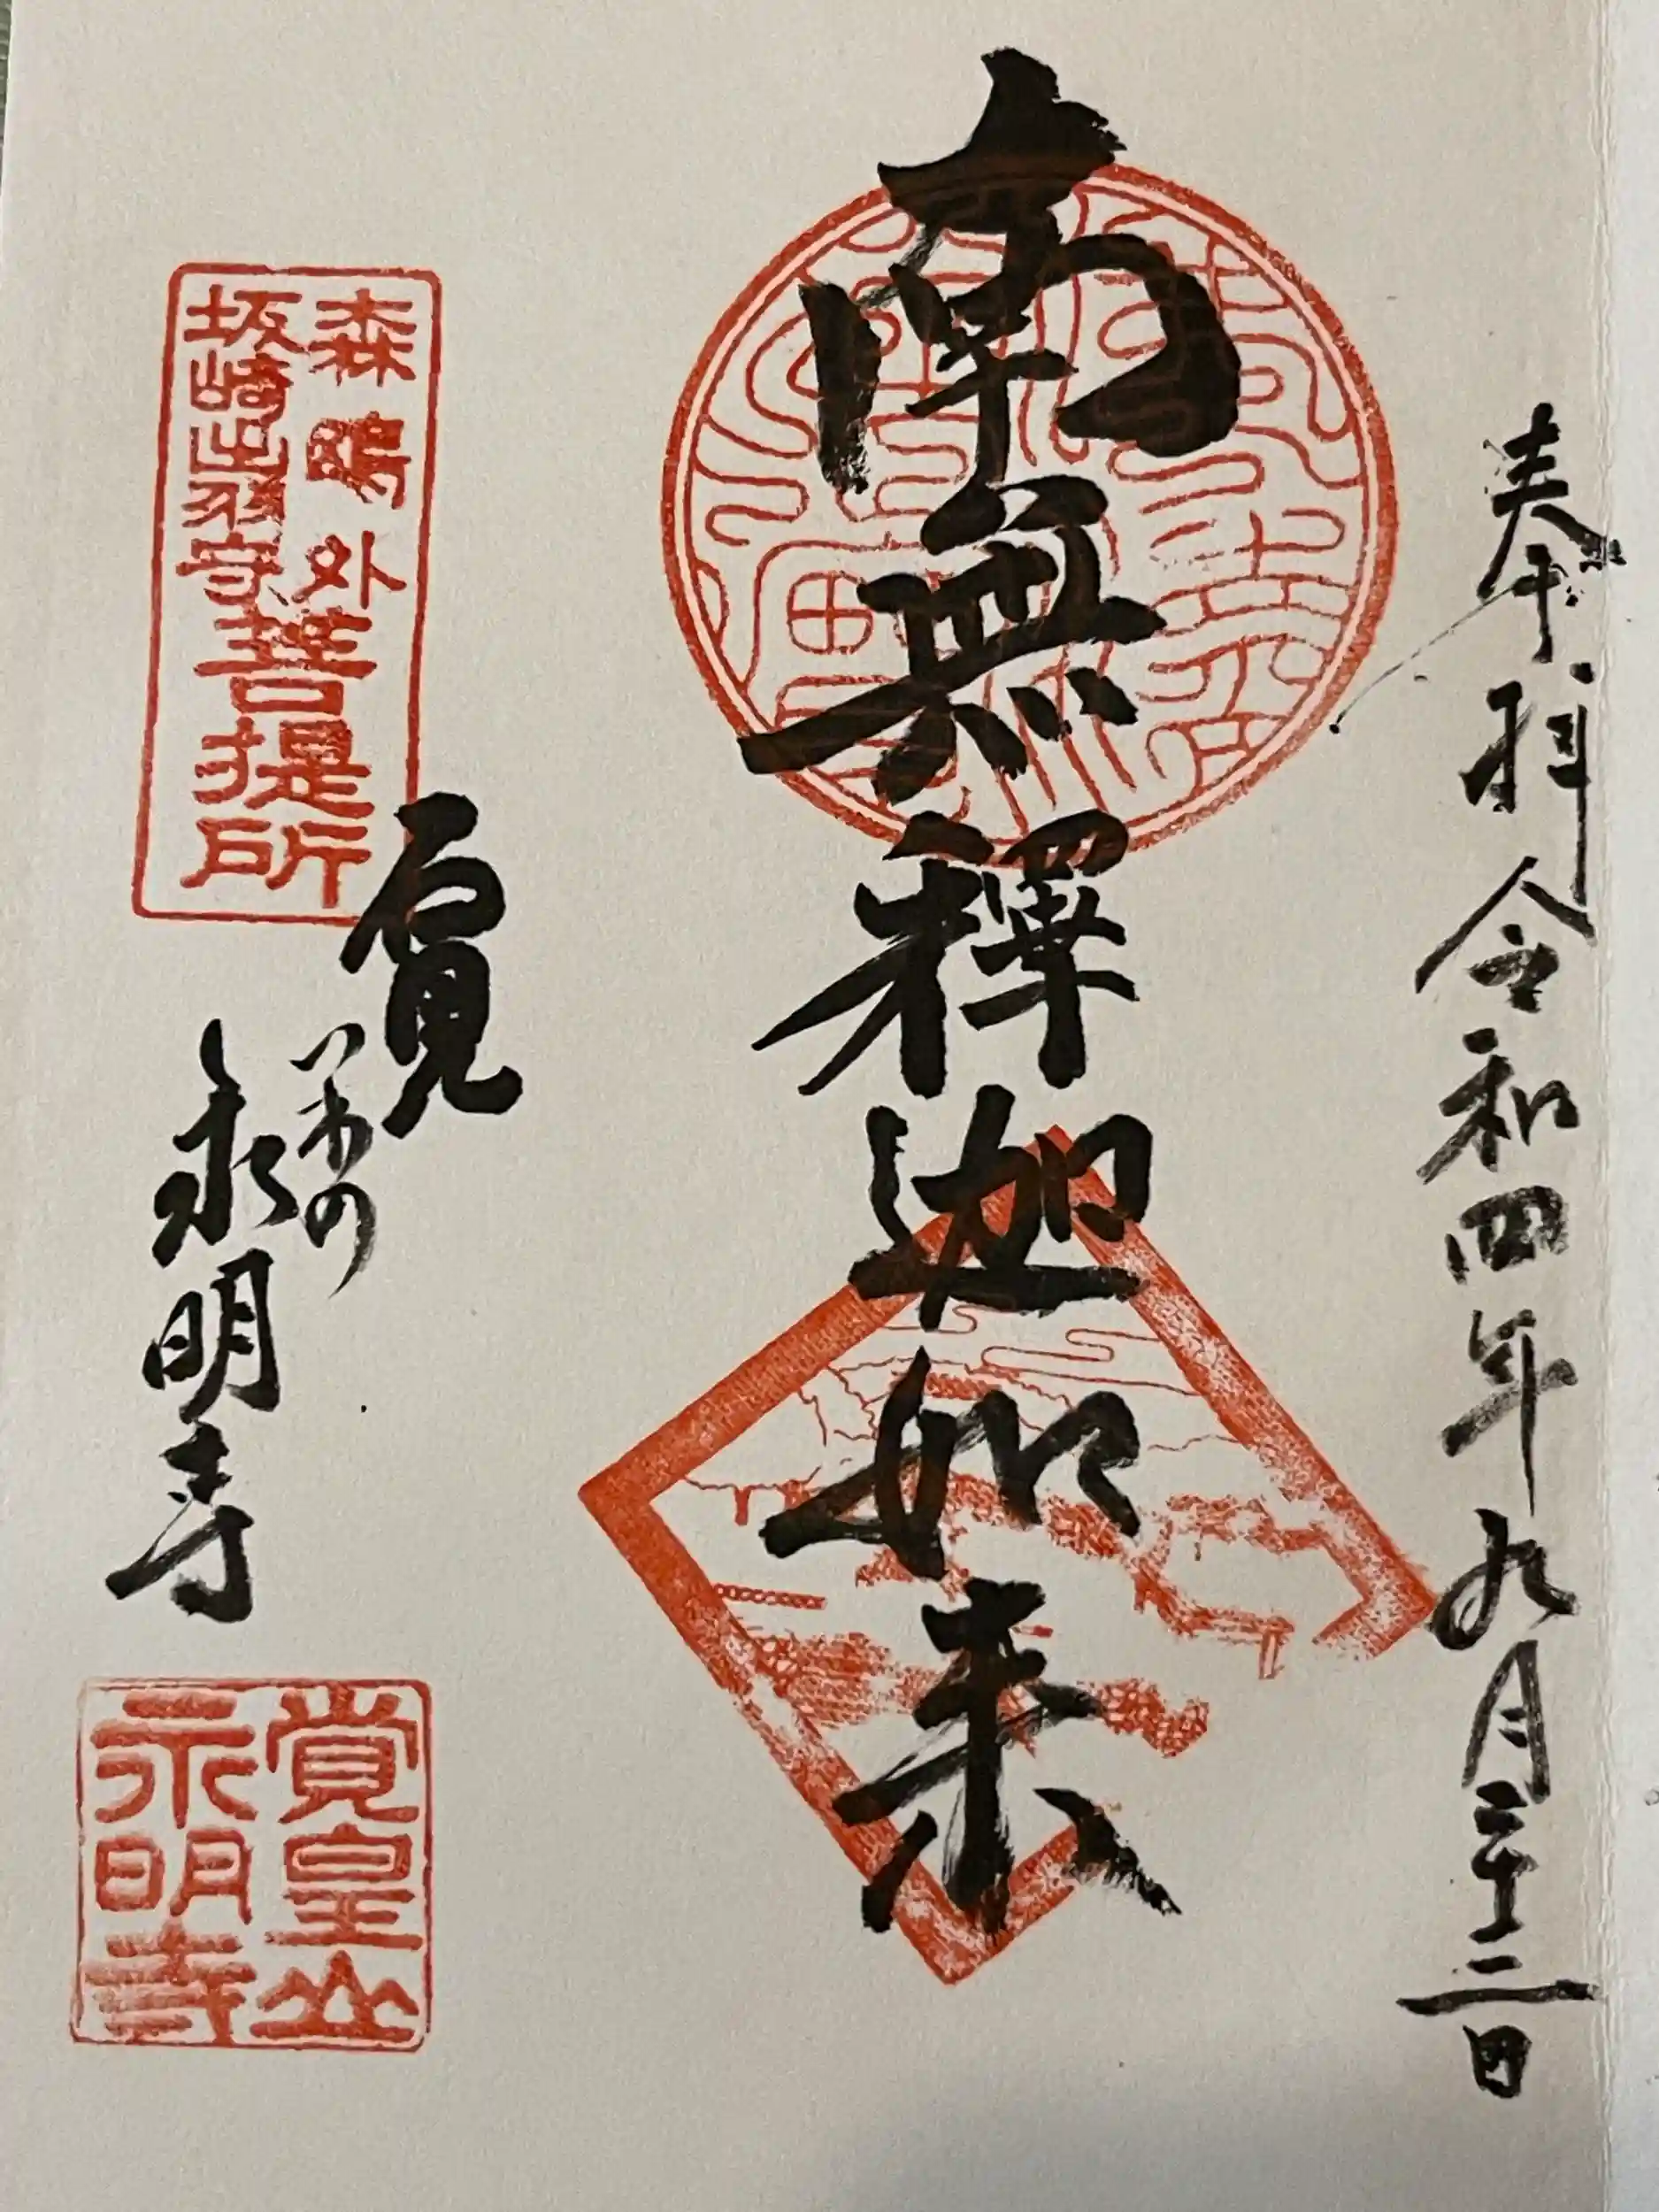 奉拝 令和四年九月二十二日
南無釋迦如来
森鴎外
坂崎出羽守
菩提所
石見
つわの
永明寺
覚皇山
永明寺